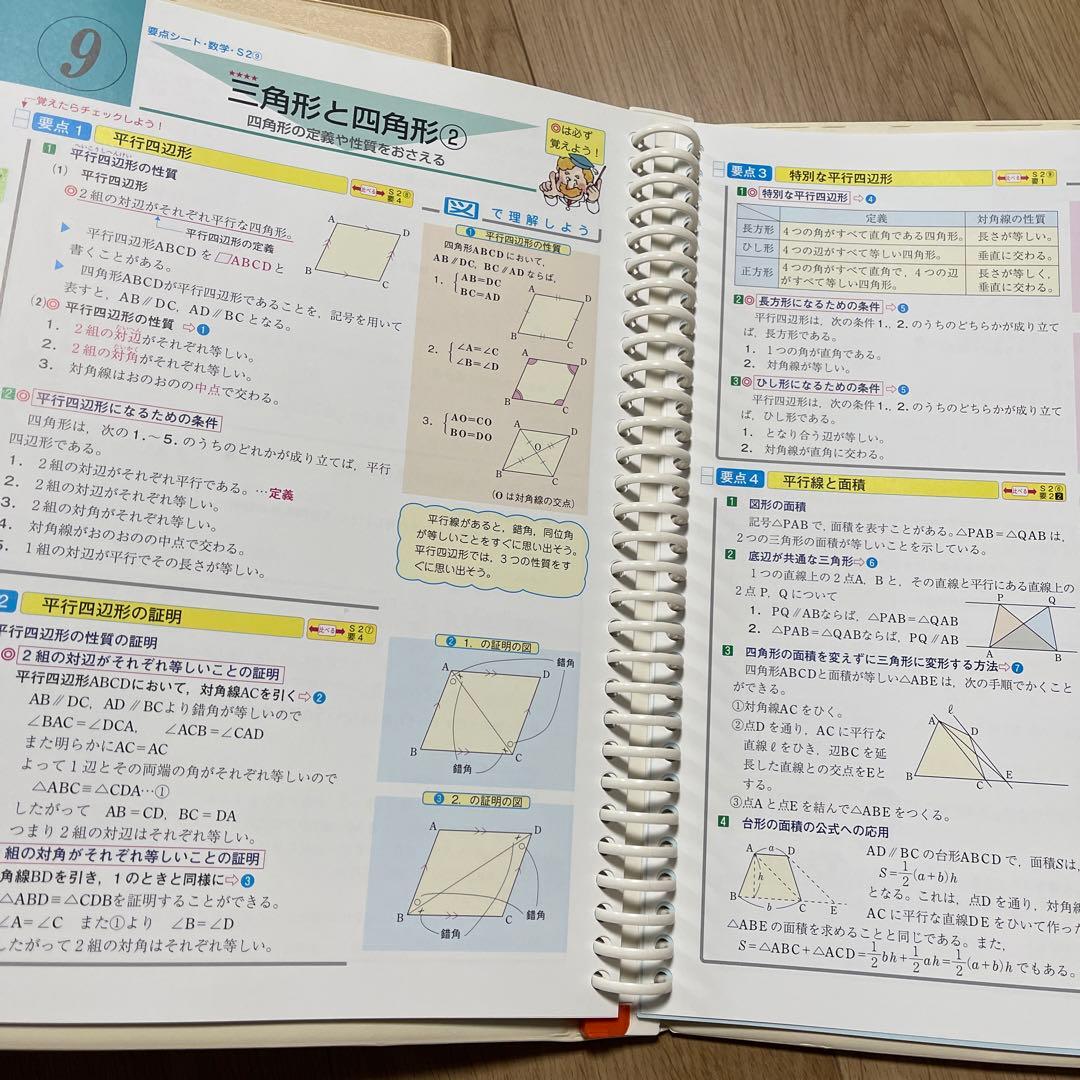 9
要点シート・数学・S2⑨
★★★★
三角形と四角形②
四角形の定義や性質をおさえる
覚えたらチェックしよう！
◎は必ず
覚えよう！
要点1 平行四辺形
比べる S2⑧ 要4
1 平行四辺形の性質
へいこうしへんけい
(1) 平行四辺形
◎2組の対辺がそれぞれ平行な四角形。
平行四辺形の定義
▶ 平行四辺形ABCDを▱ABCDと
書くことがある。
▶ 四角形ABCDが平行四辺形であることを，記号を用いて
表すと，AB∥DC，AD∥BCとなる。
A
D
B
C
(2)◎ 平行四辺形の性質 ⇨①
1. 2組の対辺がそれぞれ等しい。
2. 2組の対角がそれぞれ等しい。
3. 対角線はおのおのの中点で交わる。
2◎ 平行四辺形になるための条件
四角形は，次の1.～5.のうちのどれかが成り立てば，平行
四辺形である。
1. 2組の対辺がそれぞれ平行である。…定義
2. 2組の対辺がそれぞれ等しい。
3. 2組の対角がそれぞれ等しい。
4. 対角線がおのおのの中点で交わる。
5. 1組の対辺が平行でその長さが等しい。
図で理解しよう
① 平行四辺形の性質
四角形ABCDにおいて，
AB∥DC，BC∥ADならば，
1. AB=DC
BC=AD
A
D
B
C
2. ∠A=∠C
∠B=∠D
A
D
B
C
3. AO=CO
BO=DO
A
D
O
B
C
(Oは対角線の交点)
平行線があると，錯角，同位角
が等しいことをすぐに思い出そう。
平行四辺形では，3つの性質をす
ぐに思い出そう。
2 平行四辺形の証明
比べる S2⑦ 要4
平行四辺形の性質の証明
◎ 2組の対辺がそれぞれ等しいことの証明
平行四辺形ABCDにおいて，対角線ACを引く⇨②
AB∥DC，AD∥BCより錯角が等しいので
∠BAC=∠DCA，∠ACB=∠CAD
また明らかにAC=AC
よって1辺とその両端の角がそれぞれ等しいので
△ABC≡△CDA…①
したがって AB=CD，BC=DA
つまり2組の対辺はそれぞれ等しい。
組の対角がそれぞれ等しいことの証明
角線BDを引き，1のときと同様に⇨③
△ABD≡△CDBを証明することができる。
∠A=∠C また①より ∠B=∠D
したがって2組の対角はそれぞれ等しい。
② 1. の証明の図
錯角
A
D
B
C
錯角
③ 2. の証明の図
A
D
B
C
錯角
錯角
要点3 特別な平行四辺形
比べる S2⑨ 要1
1◎ 特別な平行四辺形 ⇨④
定義 対角線の性質
長方形 4つの角がすべて直角である四角形。 長さが等しい。
ひし形 4つの辺がすべて等しい四角形。 垂直に交わる。
正方形 4つの角がすべて直角で，4つの辺 長さが等しく，
がすべて等しい四角形。 垂直に交わる。
2◎ 長方形になるための条件 ⇨⑤
平行四辺形は，次の条件1.，2.のうちのどちらかが成り立て
ば，長方形である。
1. 1つの角が直角である。
2. 対角線が等しい。
3◎ ひし形になるための条件 ⇨⑤
平行四辺形は，次の条件1.，2.のうちのどちらかが成り立て
ば，ひし形である。
1. となり合う辺が等しい。
2. 対角線が直角に交わる。
要点4 平行線と面積
比べる S2⑥ 要2 2
1 図形の面積
記号△PABで，面積を表すことがある。△PAB=△QABは，
2つの三角形の面積が等しいことを示している。
2 底辺が共通な三角形⇨⑥
1つの直線上の2点A，Bと，その直線と平行にある直線上の
2点P，Qについて
1. PQ∥ABならば，△PAB=△QAB
2. △PAB=△QABならば，PQ∥AB
P
Q
A
B
3 四角形の面積を変えずに三角形に変形する方法⇨⑦
四角形ABCDと面積が等しい△ABEは，次の手順でかくこと
ができる。
①対角線ACをひく。
②点Dを通り，ACに平行な
直線ℓをひき，辺BCを延
長した直線との交点をEと
する。
③点Aと点Eを結んで△ABEをつくる。
A
ℓ
D
B
C
E
4 台形の面積の公式への応用
A
a
D
h
B
b
C
E
AD∥BCの台形ABCDで，面積Sは，
S=1/2(a+b)h
となる。これは，点Dを通り，対角線
ACに平行な直線DEをひいて作った
△ABEの面積を求めることと同じである。また，
S=△ABC+△ACD=1/2bh+1/2ah=1/2(a+b)hでもある。